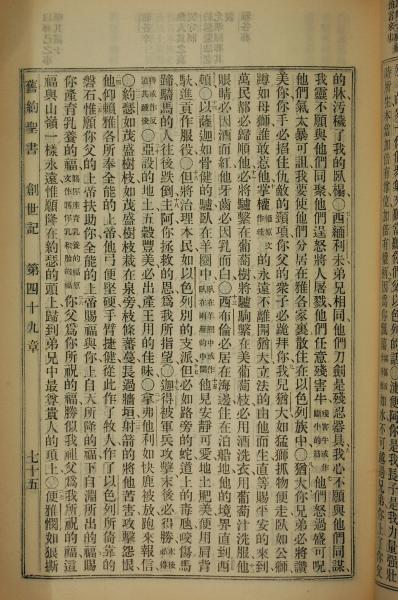 的牀汚穢了我的臥褥○西緬利未弟兄相同他們刀劍是殘忍器具我心不願與他們同謀
我靈不願與他們同聚他們逞怒將人屠戮他們任意殘害牛殘害牛或作斷牛的筋他們怒過盛可呪
他們氣太暴可詛我要使他們分居在雅各家裏散住在以色列族中○猶大你弟兄必將讚
美你你手必掐住仇敵的頸項你父的衆子必跪拜你我兒猶大如猛獅抓物便走臥如公獅
蹲如母獅誰敢惹他掌權權原文作柱的永遠不離開猶大立法的由他而生直等賜平安的來到
萬民都必歸順他必將驢繫在葡萄樹將驢駒繫在美葡萄枝必用酒洗衣用葡萄汁洗袍他
眼睛必因酒而紅他牙齒必因乳而白○西布倫必居在海邊住在泊船地他的境界直到西
頓○以薩迦如骨健的驢臥在羊圈中臥在羊圈中或作臥在兩疆的中間他見安靜可愛地土肥美便用肩背
馱進貢作服役○但將治理本民如以色列別的支派但必如路旁的蛇道上的毒虺咬傷馬
蹄騎馬的人往後跌倒主阿你拯救的恩爲我所指望○迦得被軍兵攻擊末後必得勝
○亞設的地土五穀豐美必出產王用的佳味○拿弗他利如快鹿被放跑來報信
○約瑟如茂盛樹枝如茂盛樹枝栽在泉旁枝條蕃蔓長過牆垣射箭的將他苦害攻擊怨恨
他仰賴雅各所奉全能的上帝他弓便堅硬手臂捷健從此作了牧人作了以色列所倚靠的
磐石惟願你父的上帝扶助你全能的上帝賜福與你上自天所降的福下自淵所出的福賜
你產育乳養的福你父爲你所祝的福勝似我祖父爲我所祝的福這
福與山嶺一樣永遠惟願降在約瑟的頭上歸到弟兄中最尊貴人的頂上○便雅憫如狼撕
舊約聖書 創世記 第四十九章 七十五